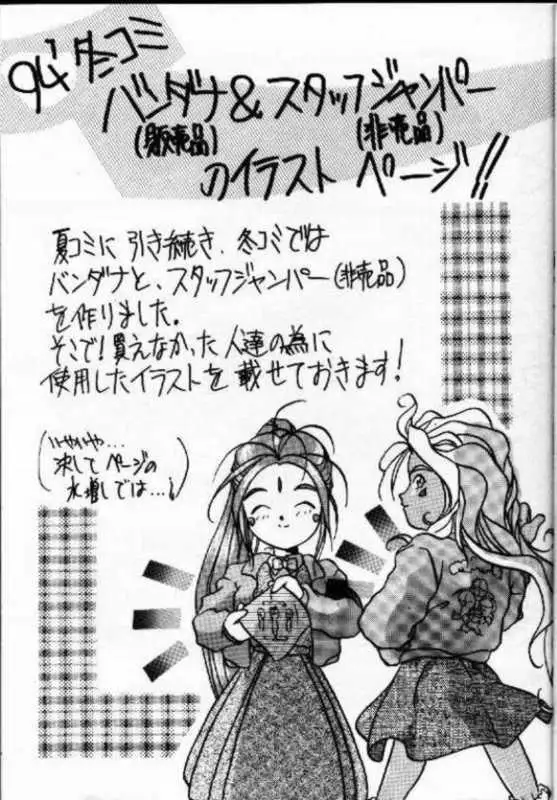 94'冬コミ
バンダナ&スタッフジャンパー
(販売品)
(非売品)
のイラスト ページ!!
夏コミに引き続き、冬コミでは
バンダナと、スタッフジャンパー(非売品)
を作りました。
そこで!買えなかった人達の為に
使用したイラストを載せておきます!
(いやいや…
決してページの
水増しでは…!)